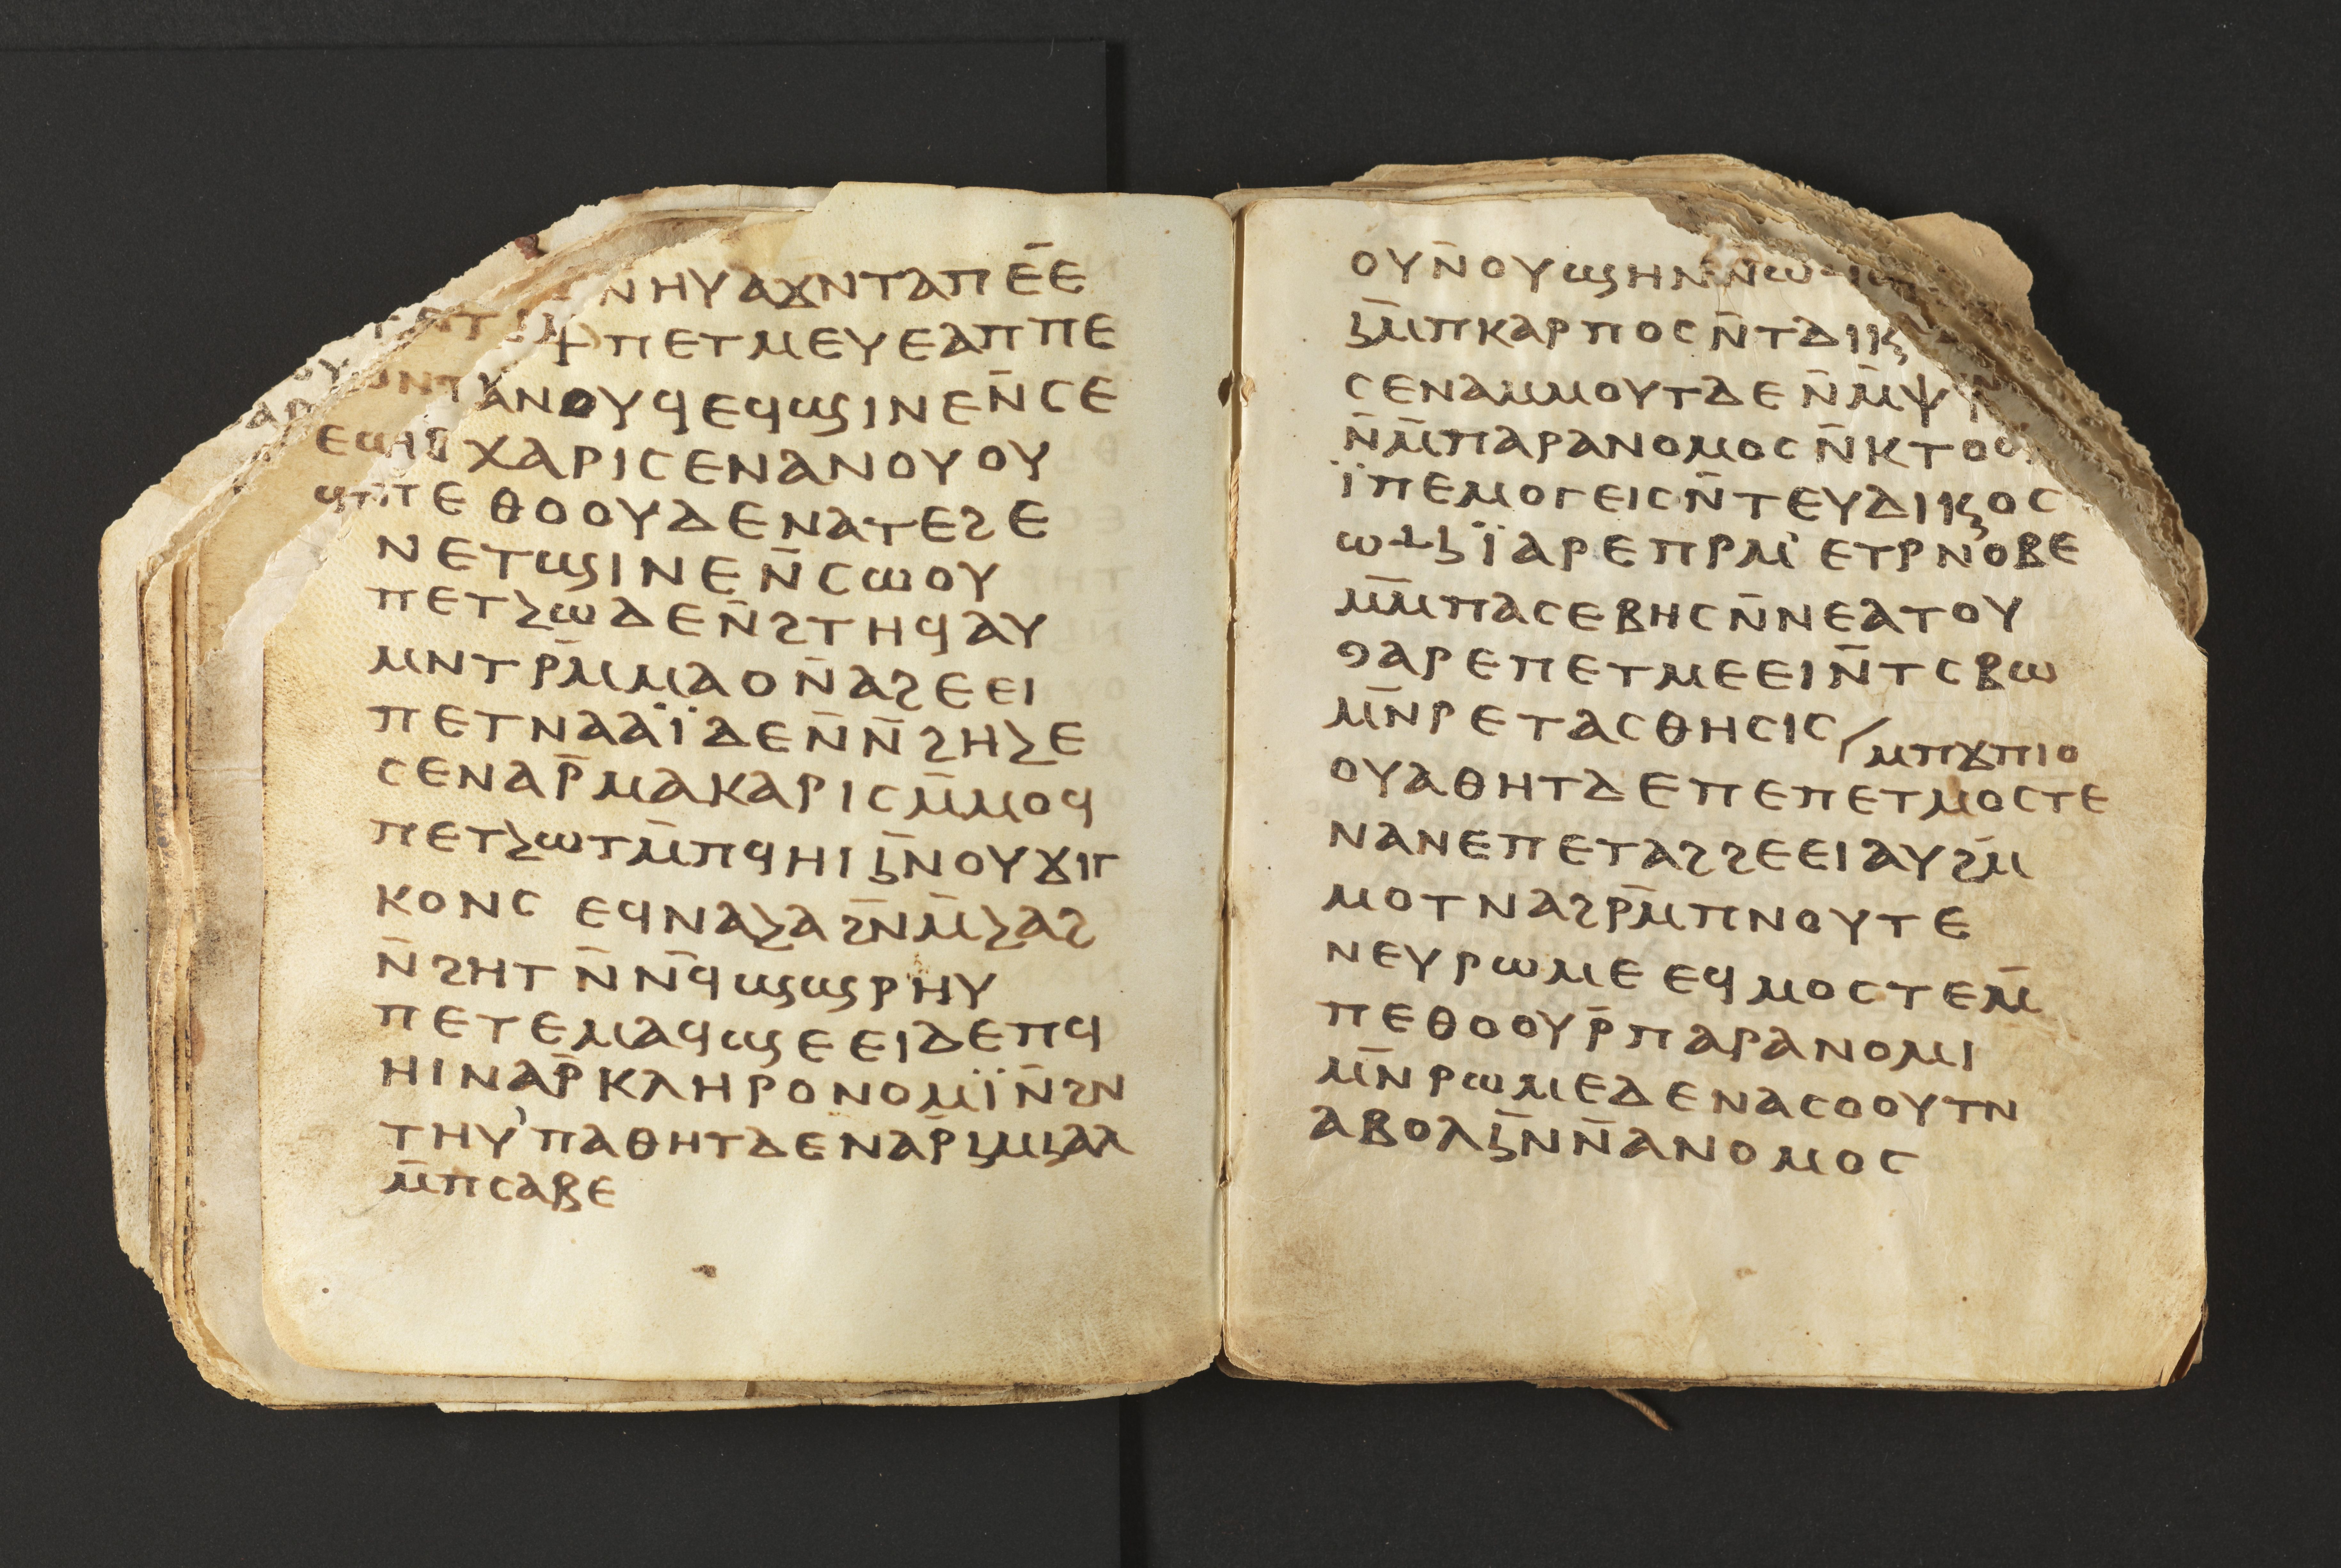 ⲛⲏⲩⲁϫⲛⲧⲁⲡⲉ̄ⲉ
ⲡⲉⲧⲙⲉⲩⲉⲁⲡⲡⲉ
ⲁⲛⲟⲩϥⲉϥϣⲓⲛⲉⲛ̄ⲥⲉ
ⲭⲁⲣⲓⲥⲉⲛⲁⲛⲟⲩⲟⲩ
ⲡⲉⲑⲟⲟⲩⲇⲉⲛⲁⲧⲉⳋⲉ
ⲛⲉⲧϣⲓⲛⲉⲛ̄ⲥⲱⲟⲩ
ⲡⲉⲧⲹⲱⲇⲉⲛ̄ⳋⲧⲏϥⲁⲩ
ⲙⲛⲧⲣⲙ̄ⲙⲁⲟⲛ̄ⲁⳋⲉⲉⲓ
ⲡⲉⲧⲛⲁⲁⲓ̈ⲇⲉⲛ̄ⲛ̄ⳋⲏⲹⲉ
ⲥⲉⲛⲁⲣ̄ⲙⲁⲕⲁⲣⲓⲥⲙ̄ⲙⲟϥ
ⲡⲉⲧⲹⲱⲧⲙ̄ⲡϥⲏⲓϧ̄ⲛⲟⲩϫⲓⲡ
ⲕⲟⲛⲥ ⲉϥⲛⲁⲹⲁⳋ̄ⲛⲙ̄ⲹⲁⳋ
ⲛ̄ⳋⲏⲧ ⲛ̄ⲛ̄ϥϣϣⲣⲏⲩ
ⲡⲉⲧⲉⲙⲁϥϣⲉⲉⲓⲇⲉⲡϥ
ⲏⲓⲛⲁⲣ̄ⲕⲗⲏⲣⲟⲛⲟⲙⲓ̈ⲛ̄ⳋⲛ
ⲧⲏⲩ'ⲡⲁⲑⲏⲧⲇⲉⲛⲁⲣ̄ϧⲙϧⲁⲗ
ⲙ̄ⲡⲥⲁⲃⲉ
ⲟⲩⲛ̄ⲟⲩϣⲏⲛⲛ̄ⲱ
ϧ̄ⲙⲡⲕⲁⲣⲡⲟⲥⲛ̄ⲧⲇⲓⲕ
ⲥⲉⲛⲁⲙⲙⲟⲩⲧⲇⲉⲛ̄ⲙ̄ⲯ
ⲛ̄ⲙ̄ⲡⲁⲣⲁⲛⲟⲙⲟⲥⲛ̄ⲕⲧⲟⲟⲩ
ⲓ̈ⲡⲉⲙⲟⲅⲉⲓⲥⲛ̄ⲧⲉⲩⲇⲓⲕⲟⲥ
ⲱⲻϧⲓ̈ⲁⲣⲉⲡⲣⲙ'ⲉⲧⲣⲛ'ⲟⲃⲉ
ⲙ̄ⲙ̄ⲡⲁⲥⲉⲃⲏⲥⲛ̄ⲛⲉⲁⲧⲟⲩ
9ⲁⲣⲉⲡⲉⲧⲙⲉⲉⲓⲛ̄ⲧⲥⲃⲱ
ⲙ̄ⲛⲣⲉⲧⲁⲥⲑⲏⲥⲓⲥ/ⲙⲡϫⲡⲓⲟ
ⲟⲩⲁⲑⲏⲧⲇⲉⲡⲉⲡⲉⲧⲙⲟⲥⲧⲉ
ⲛⲁⲛⲉⲡⲉⲧⲁⳋⳋⲉⲉⲓⲁⲩⳋⲙ̄
ⲙⲟⲧⲛⲁⳋⲣⲙ̄ⲡⲛⲟⲩⲧⲉ
ⲛⲉⲩⲣⲱⲙⲉⲉϥⲙⲟⲥⲧⲉⲙ̄
ⲡⲉⲑⲟⲟⲩⲣ̄ⲡⲁⲣⲁⲛⲟⲙⲓ
ⲙ̄ⲛⲣⲱⲙⲉⲇⲉⲛⲁⲥⲟⲟⲩⲧⲛ
ⲁⲃⲟⲗϧ̄ⲛⲛ̄ⲁⲛⲟⲙⲟⲥ